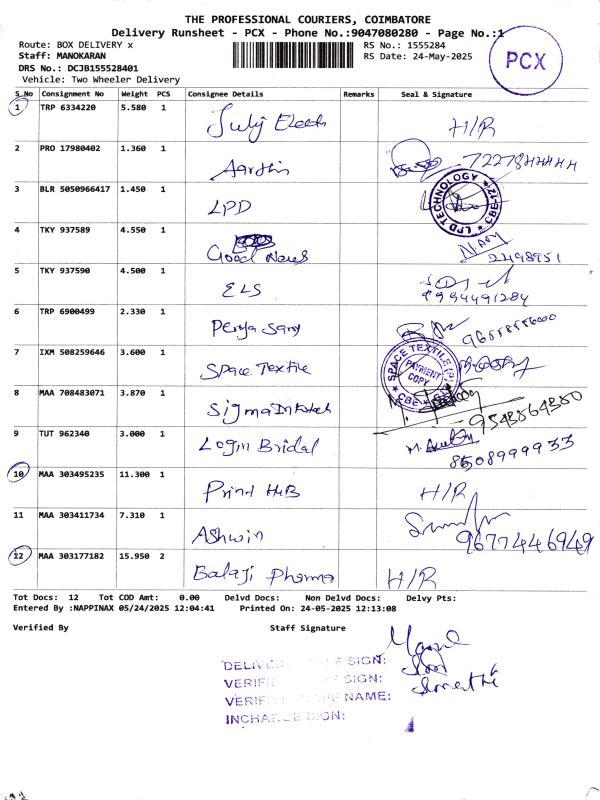 THE PROFESSIONAL COURIERS, COIMBATORE
Delivery Runsheet - PCX - Phone No.:9047080280 - Page No.:1
Route: BOX DELIVERY x
RS No.: 1555284
PCX
Staff: MANOKARAN
RS Date: 24-May-2025
DRS No.: DCJB155528401
Vehicle: Two Wheeler Delivery
S_No Consignment No Weight PCS Consignee Details Remarks Seal & Signature
1 TRP 6334220 5.580 1 H/R
2 PRO 17980402 1.360 1 Aarthin
3 BLR 5050966417 1.450 1 LPD LPD TECHNOLOGY CBE-12
4 TKY 937589 4.550 1 Good News
5 TKY 937590 4.500 1 ELS 9994491284
6 TRP 6900499 2.330 1 Periya Samy
7 IXM 508259646 3.600 1 Space Textile SPACE TEXTILE PAYMENT COPY CBE
8 MAA 708483071 3.870 1 9543864350
9 TUT 962340 3.000 1 Login Bridal 8508999933
10 MAA 303495235 11.300 1 Print HUB H/R
11 MAA 303411734 7.310 1 Ashwin 9677446949
12 MAA 303177182 15.950 2 Balaji Pharma H/R
Tot Docs: 12 Tot COD Amt: 0.00 Delvd Docs: Non Delvd Docs: Delvy Pts:
Entered By :NAPPINAX 05/24/2025 12:04:41 Printed On: 24-05-2025 12:13:08
Verified By Staff Signature
SIGN:
SIGN:
NAME:
SIGN: